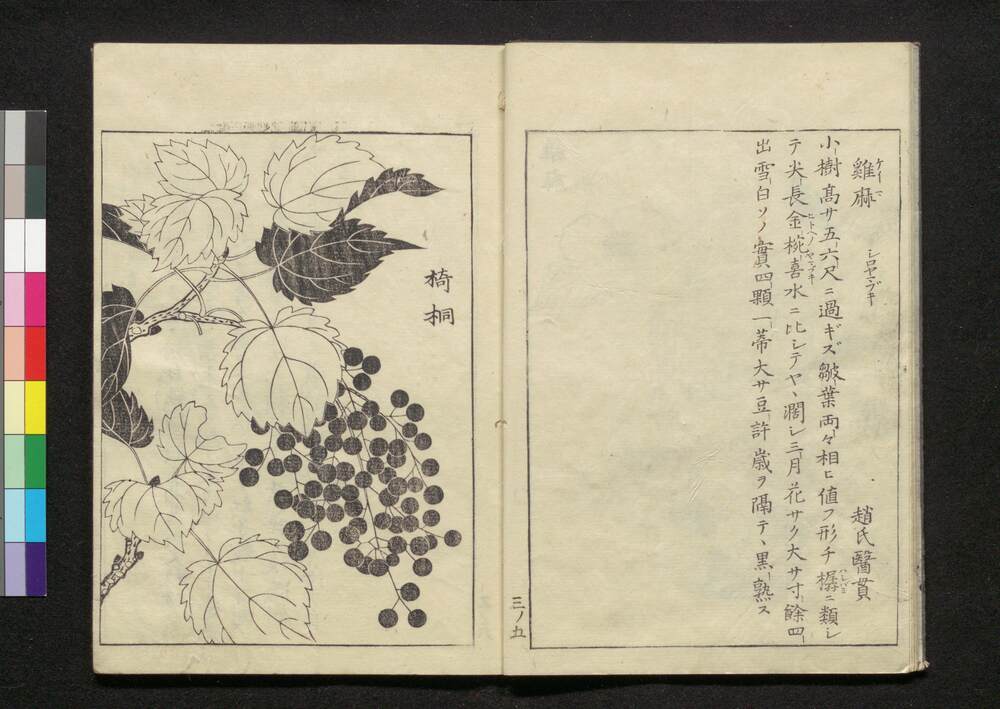 雞麻 ケーマ シロヤマブキ 趙氏醫貫
小樹髙サ五六尺ニ過ギズ皺葉両々相ヒ値フ形チ樺ニ類シ
テ尖長金椀喜水ニ比シテヤヽ濶シ三月花サク大サ寸餘四
出雪白ソノ實四顆一蒂大サ豆許歳ヲ隔テヽ黒熟ス
椅桐
三ノ五